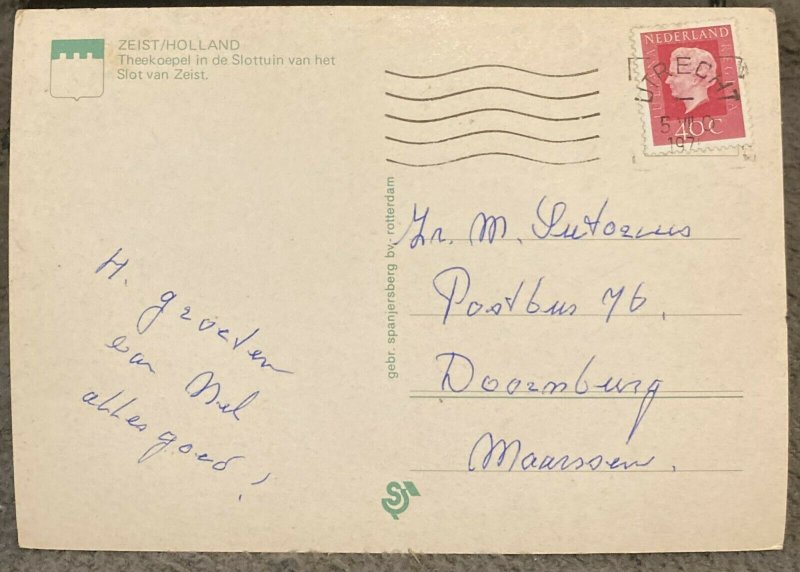 ZEIST/HOLLAND
Theekoepel in de Slottuin van het
Slot van Zeist.
NEDERLAND
JULIANA REGINA
40c
UTRECHT
gebr. spanjersberg bv.- rotterdam
Zr. M. Sutorius
Postbus 76.
Doornburg
Maarssen.
H. groeten
van Nel
alles goed!